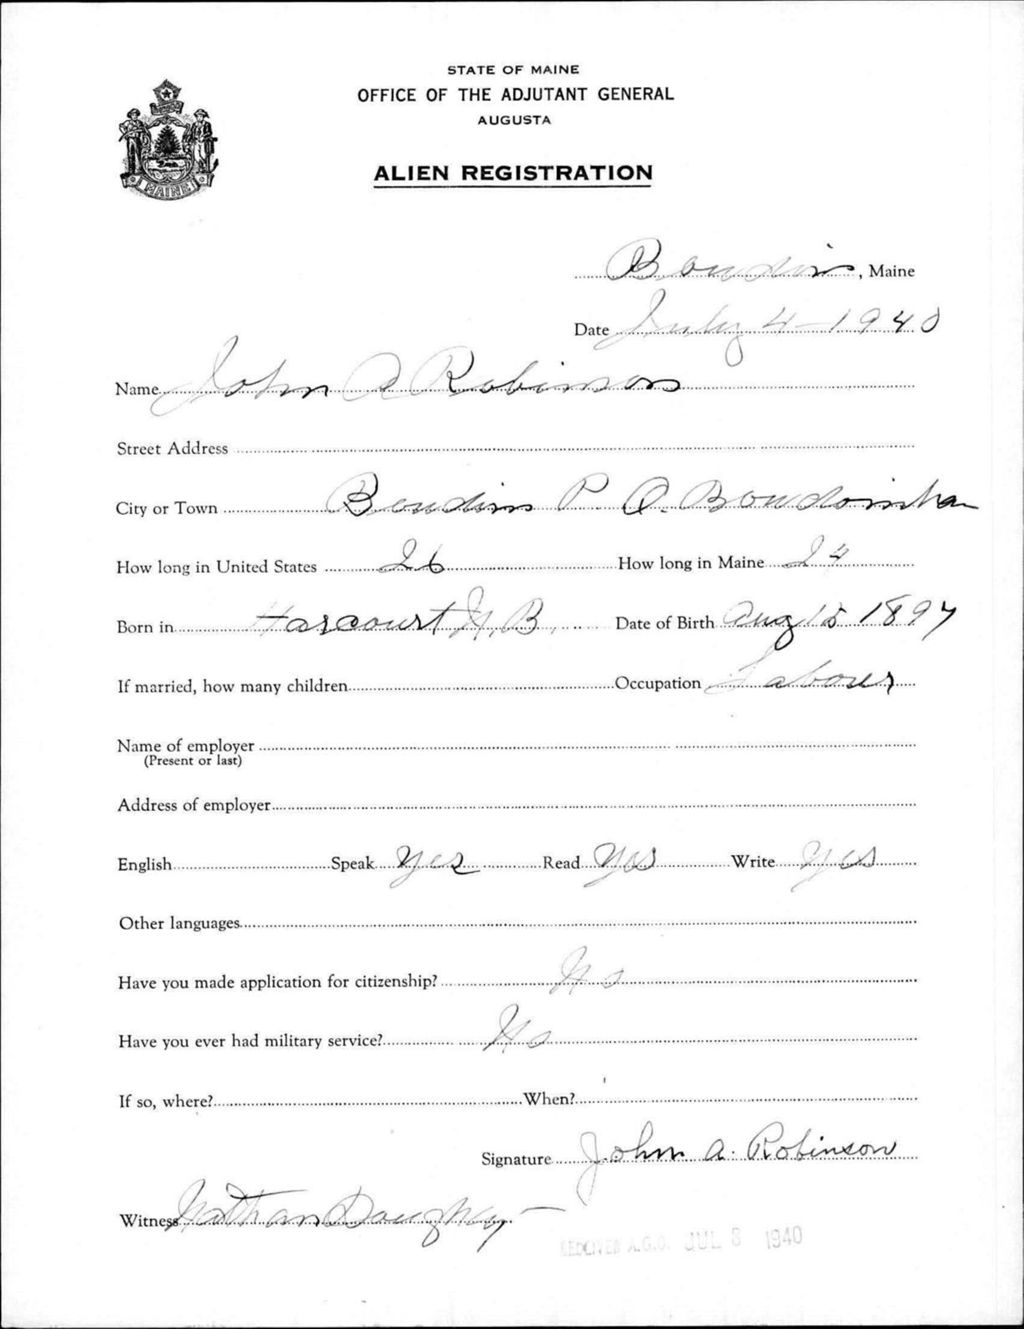 STATE OF MAINE
OFFICE OF THE ADJUTANT GENERAL
AUGUSTA
ALIEN REGISTRATION
MAINE
Bowdoin, Maine
Date July 4 - 1940
Name John A Robinson
Street Address
City or Town Bowdoin P. O. Bowdoinham
How long in United States 26 How long in Maine 24
Born in Harcourt N. B. Date of Birth Aug 15 1897
If married, how many children Occupation Laborer
Name of employer
(Present or last)
Address of employer
English Speak Yes Read Yes Write Yes
Other languages
Have you made application for citizenship? No
Have you ever had military service? No
If so, where? When?
Signature John A. Robinson
Witness Nathan
RECEIVED A.G.O. JUL 8 1940